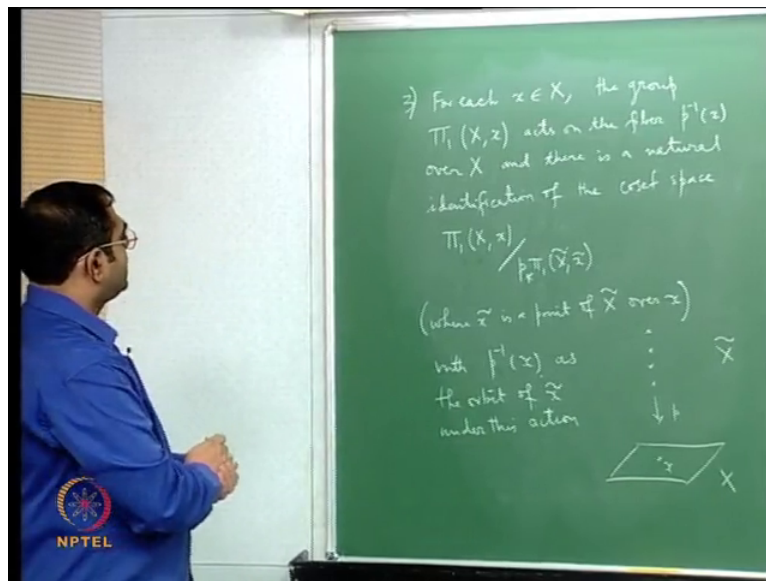 3) For each x ∈ X, the group
Π₁(X,x) acts on the fiber p⁻¹(x)
over X and there is a natural
identification of the coset space
Π₁(X,x) / p_* Π₁(X̃, x̃)
(where x̃ is a point of X̃ over x)
with p⁻¹(x) as
the orbit of x̃
under this action
X̃
p
x
X
NPTEL